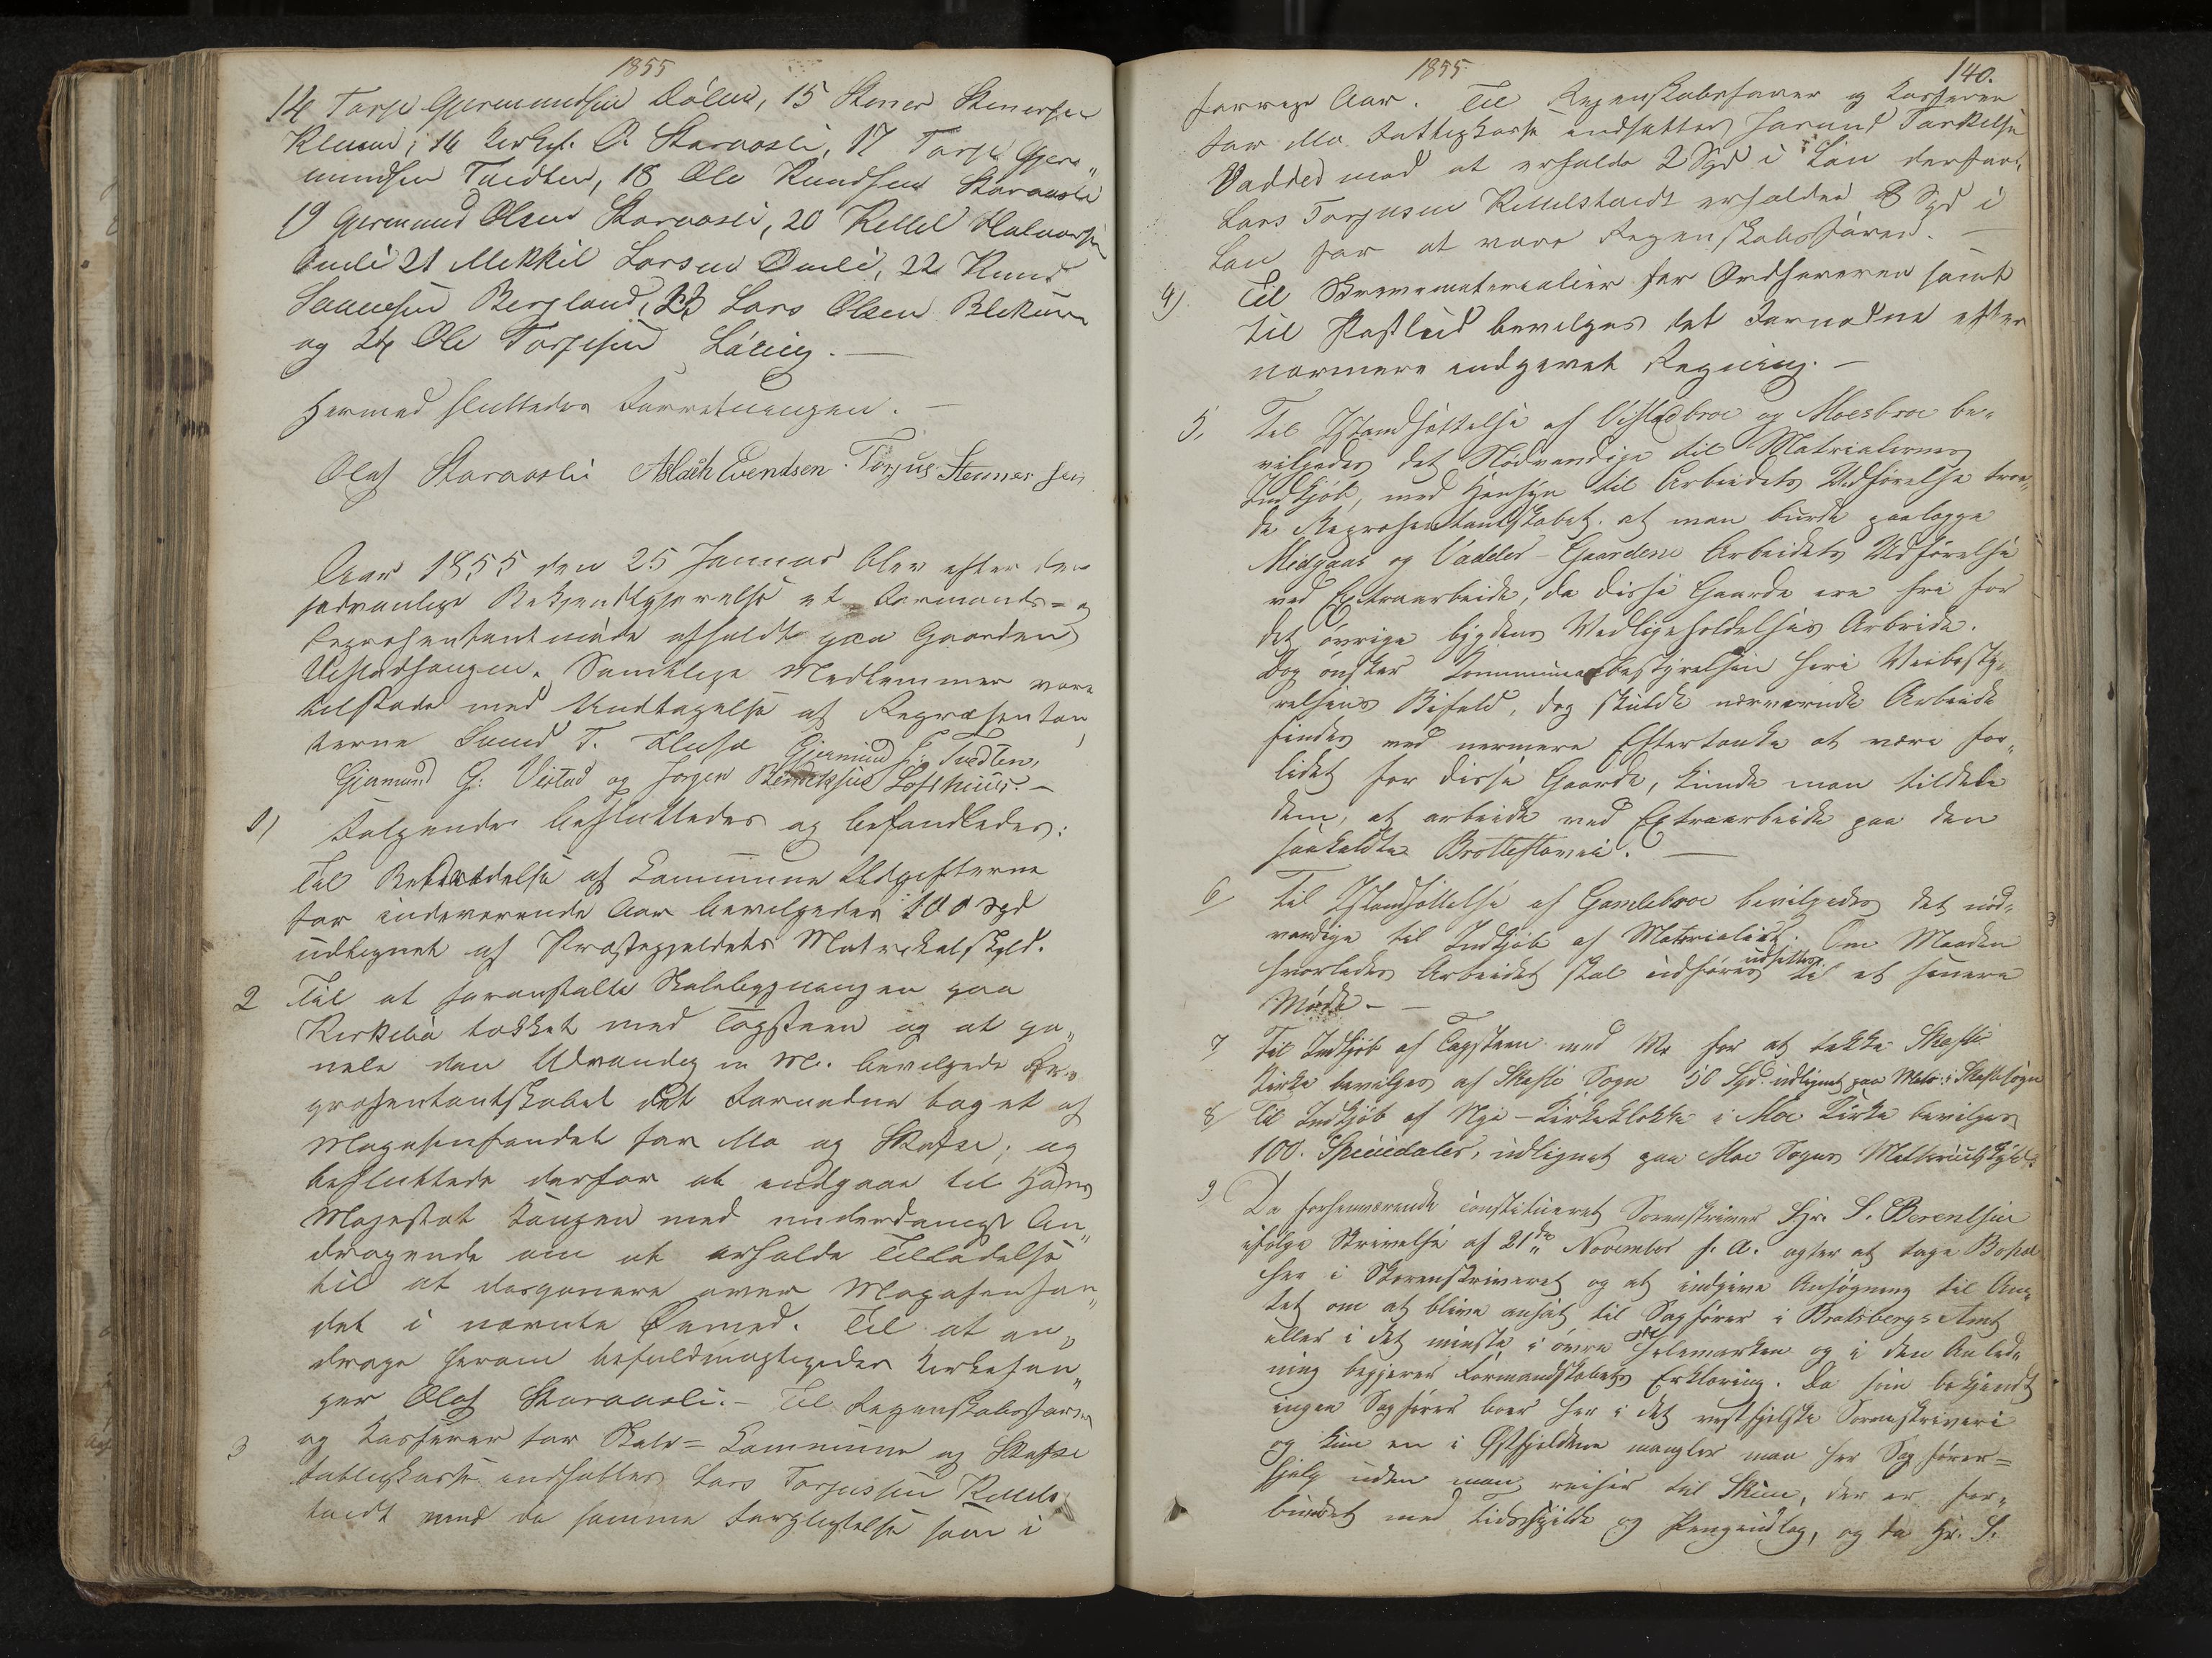 1855
14 Torje Gjermundsen Dølen, 15 Stener Stenersen
Klucud; 16 Kirks. O. Staraasli, 17 Torje Gjer"
mundsen Tvedten, 18 Ole Knudsen Staraasli
19 Gjermund Olsen Staraasli, 20 Kettel Halvorsen
Omli 21 Mikkil Larsen Omli, 22 Knud
Saamsen Bergland, 23 Lars Olsen Blekum
og 24 Ole Torjesen Læring. —
Hermed sluttedes Forretningen. —
Olaf Staraasli Aslach Evendsen. Torjus Steiner sen
Aar 1855 den 25 Januar blev efter den
sædvanlige Bekjendtgjørelse et Formands= og
Repræsentantmøde afholdt paa Gaarden
Vistadhaugen. Samtlige Medlemmer vare
tilstæde med Undtagelse af Repræsentan,
terne Svend T. Gjermund T. Tvedten,
Gjermund G: Vistad og Jørgen Bendiksen Lofthuus. —
1) Følgende besluttedes og befandtedes:
Til Bestridelse af Commune Udgifterne
for indeværende Aar bevilgedes 100 Spd
udlignet af Præstegjeldets Matrikelskyld.
2 Til at foranstalte Skolebygningen paa
Kirkebø tækket med Tagsteen og at pa"
nele den Udvendig m M. bevilgede Re"
præsentantskabet det Fornødne taget af
Magasinfondet for Mo og Skafse; og
besluttede derfor at indgaae til Hans
Majestæt Kongen med underdanigst An"
dragende om at erholde Tilladelse
til at disponere over Magasinfon"
det i nævnte Øiemed. Til at an"
drage herom befuldmægtigedes Kirkesan"
ger Olaf Staraasli. — Til Regenskabsfører
3 og Kasserer for Skole= Commune og Skafse
Fattigkasse indsattes Lars Torjussen Kettels
tvedt med de samme Forpligtelse som i
1855
140.
forrige Aar. Til Regenskabsfører og Kasserer
for Mo Fattigkasse indsattes Tarkelsen
Vadder mod at erholde 2 Spd i Løn derfor.
Lars Torjusen Kittelstvedt erholder 8 Spd i
Løn for at være Regenskabsfører. —
4) Til Skrivematerialier for Ordføreren samt
til Postbud bevilges det Fornødne efter
nærmere indgivet Regning. —
5. Til Istandsættelse af Vistadbroe og Moesbroe be"
vilgedes det Nødvendige til Materialernes
Indkjøb, med Hensyn til Arbeidets Udførelse tro"
de Repræsentantskabet, at man burde paalægge
Midgaas og Vadder-Gaardene Arbeidets Udførelse
ved Extraarbeide, da disse Gaarde ere fri for
det øvrige bygdens Vedligeholdelses Arbeide.
Dog ønsker Communebestyrelsen heri Veibesty"
relsens Bifald, dog skulde nærværende Arbeide
findes ved nærmere Eftertanke at være for"
lidet for disse Gaarde, kunde man tildele
dem, at arbeide ved Extraarbeide paa den
saakaldte Brottestøvei. —
6 Til Istandsættelse af Gamlebroe bevilgedes det nød"
vendige til Indkjøb af Materialier. Om Maaden
hvorledes Arbeidet skal udføres udsettes til et senere
Møde. —
7 Til Indkjøb af Tagsteen med M: for at tække Skafse
Kirke bevilges af Skafse Sogn 50 Spd. udlignet paa Matr: i Skafsesogn
8 Til Indkjøb af Nye-Kirkeklokke i Moe Kirke bevilges
100. Speciedaler, udlignet paa Moe Sogns Matriculskyld
9 Da forhenværende constitueret Sorenskriver Hr. S. Berentsen
ifølge Skrivelse af 21de November f. A. agter at tage Bopæl
her i Sorenskriveriet og at indgive Ansøgning til Am"
tet om at blive ansat til Sagfører i Bratsbergs Amt
eller i det mindste i øvre Thelemarken og i den Anled"
ning begjeres Formandskabets Erklæring. Da som bekjendt
ingen Sagfører boer her i det vestfjelske Sorenskriveri
og kun en i Østfjeldene mangler man her Sagfører=
hjelp uden man reiser til Skien, der er for"
bundet med tidsspilde og Pengeudlæg, og da Hr. S.